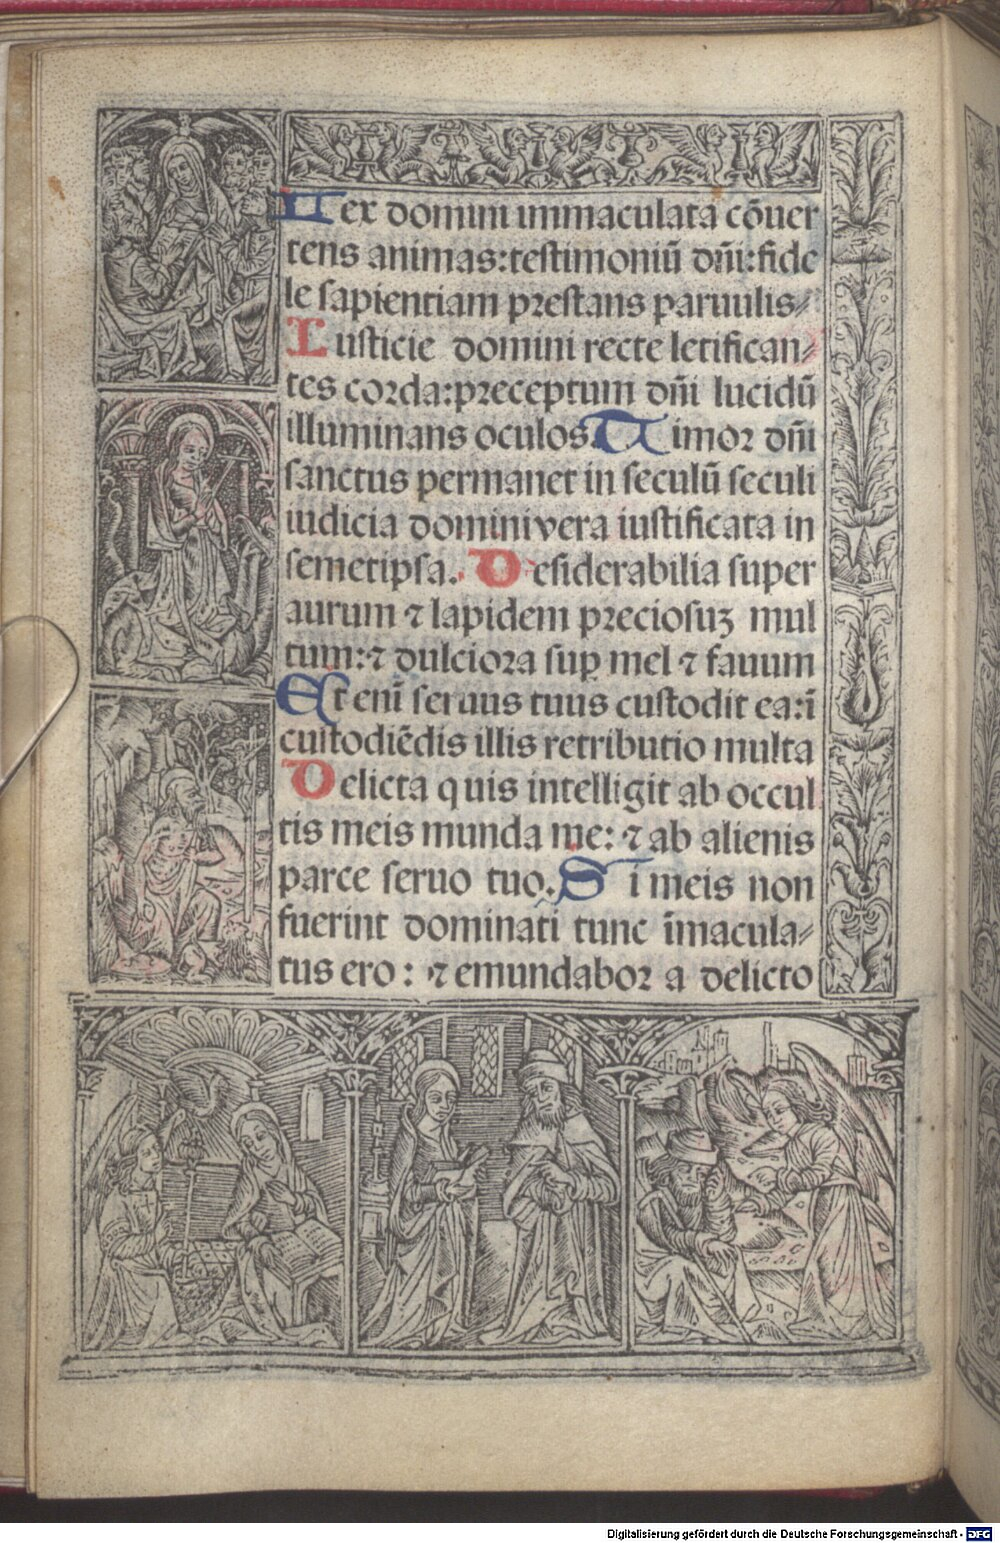 Lex domini immaculata cōuer
tens animas: testimoniū dn̄i: fide
le sapientiam prestans paruulis⸗
Iusticie domini recte letifican⸗
tes corda: preceptum dn̄i lucidū
illuminans oculos. Timor dn̄i
sanctus permanet in seculū seculi
iudicia domini vera iustificata in
semetipsa. Desiderabilia super
aurum ⁊ lapidem preciosuꝫ mul
tum: ⁊ dulciora suꝑ mel ⁊ fauum
Et enī seruus tuus custodit ea: ī
custodiēdis illis retributio multa
Delicta quis intelligit ab occul
tis meis munda me: ⁊ ab alienis
parce seruo tuo. Si meis non
fuerint dominati tunc īmacula⸗
tus ero: ⁊ emundabor a delicto
Digitalisierung gefördert durch die Deutsche Forschungsgemeinschaft - DFG